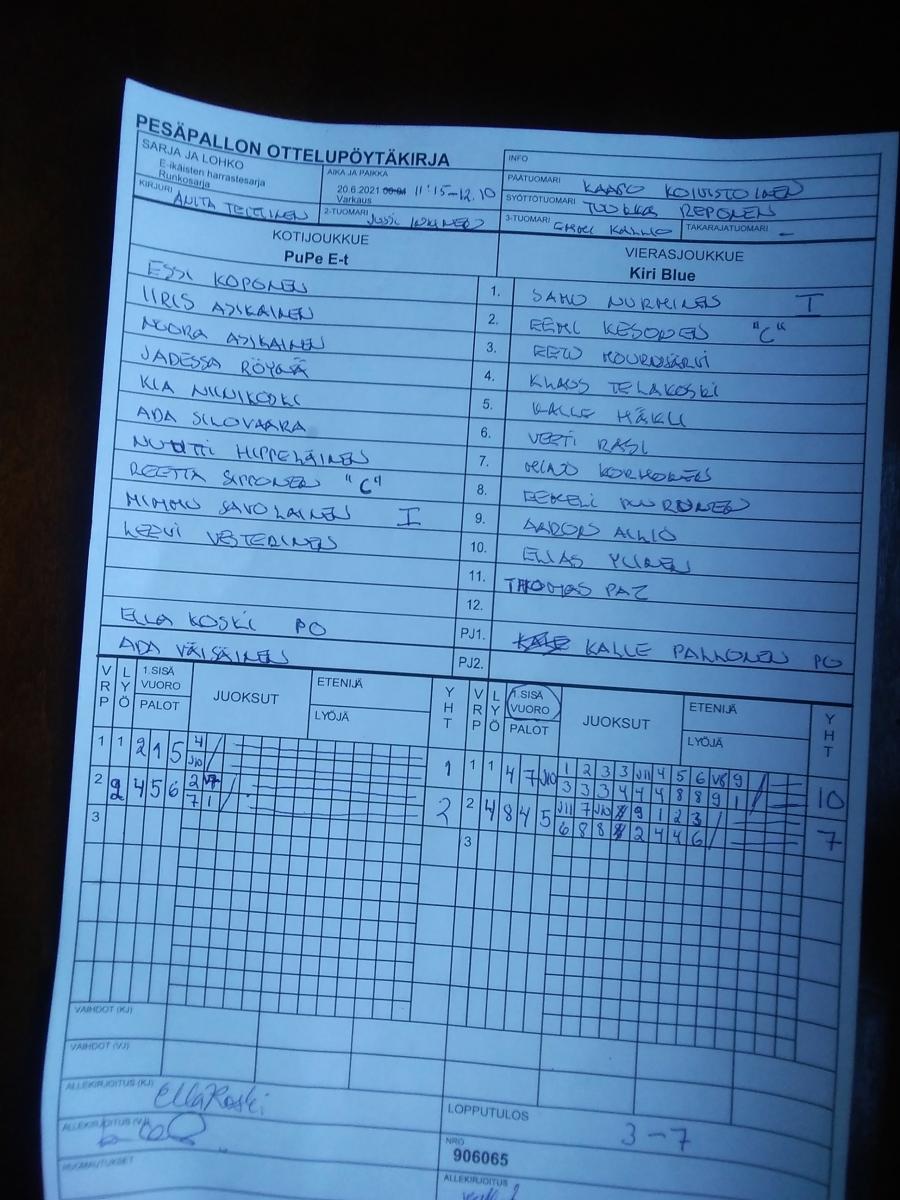 PESÄPALLON OTTELUPÖYTÄKIRJA
SARJA JA LOHKO
E-ikäisten harrastesarja
Runkosarja
AIKA JA PAIKKA
20.6.2021 11:15-12.10
Varkaus
INFO
PÄÄTUOMARI KAAPO KOIVISTOINEN
KIRJURI
2-TUOMARI
SYÖTTÖTUOMARI TUUKKA REPONEN
3-TUOMARI KALLIO
TAKARAJATUOMARI –
KOTIJOUKKUE
PuPe E-t
VIERASJOUKKUE
Kiri Blue
ESSI KOPONEN 1. SAMU NURMINEN I
IIRIS ASIKAINEN 2. EEMI KESONEN "C"
NOORA ASIKAINEN 3. EETU
JADESSA RÖYNÄ 4. KLAUS TELAKOSKI
KIA NIINIKOSKI 5. KALLE HÄKLI
ADA SILOVAARA 6. VEETI RASI
HIPPELÄINEN 7. KORHONEN
REETTA SIPPONEN "C" 8. EEMELI PUURUNEN
MIMMU SAVOLAINEN I 9. AARON ALLIO
LEEVI VESTERINEN 10. ELIAS YLINEN
11. THOMAS PAZ
12.
ELLA KOSKI PO PJ1. KALLE PAKKONEN PO
ADA VÄISÄINEN PJ2.
VRP LYÖ 1.SISÄ VUORO PALOT JUOKSUT ETENIJÄ LYÖJÄ YHT VRP LYÖ 1.SISÄ VUORO PALOT JUOKSUT ETENIJÄ LYÖJÄ YHT
1 1 2 1 5 4 / 1 1 1 4 7 J10 1 2 3 3 J11 4 5 6 V8 9 / 10
J10 3 3 3 4 4 4 8 8 9 1
2 9 4 5 6 2 / 2 2 4 8 4 5 J11 7 J10 9 1 2 3 / 7
7 1 6 8 8 2 4 4 6
3 3
VAIHDOT (KJ)
VAIHDOT (VJ)
ALLEKIRJOITUS (KJ) Ella Koski
ALLEKIRJOITUS (VJ)
HUOMAUTUKSET
LOPPUTULOS
3-7
NRO
906065
ALLEKIRJOITUS